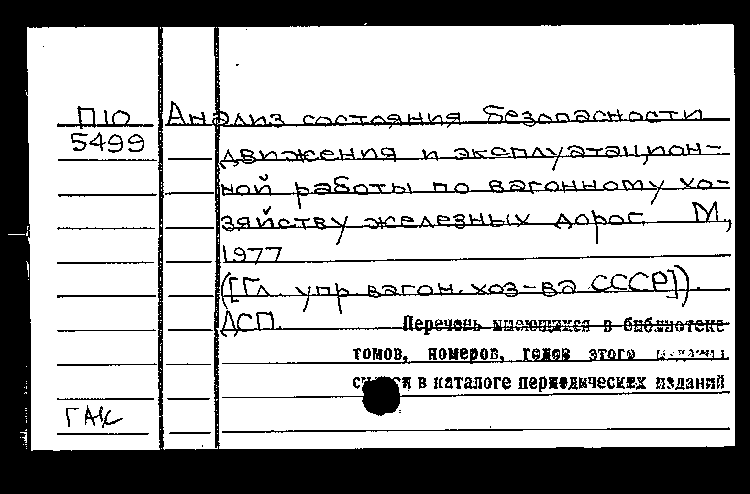 П10 Анализ состояния безопасности
5499 движения и эксплуатацион-
ной работы по вагонному хо-
зяйству железных дорог М.,
1977
([Гл. упр. вагон. хоз-ва СССР]).
ДСП. Перечень имеющихся в библиотеке
томов, номеров, годов этого
в каталоге периодических изданий
ГАК